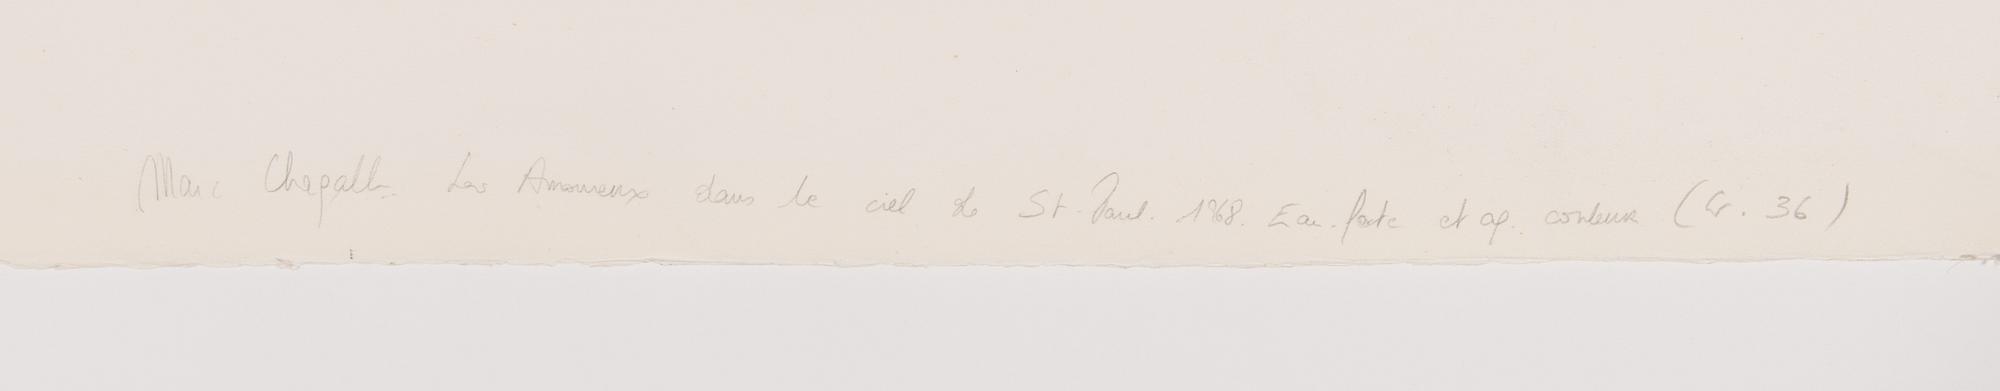 Marc Chagall. Les Amoureux dans le ciel de St. Paul. 1968. Eau-forte et aq. couleur (Cr. 36)